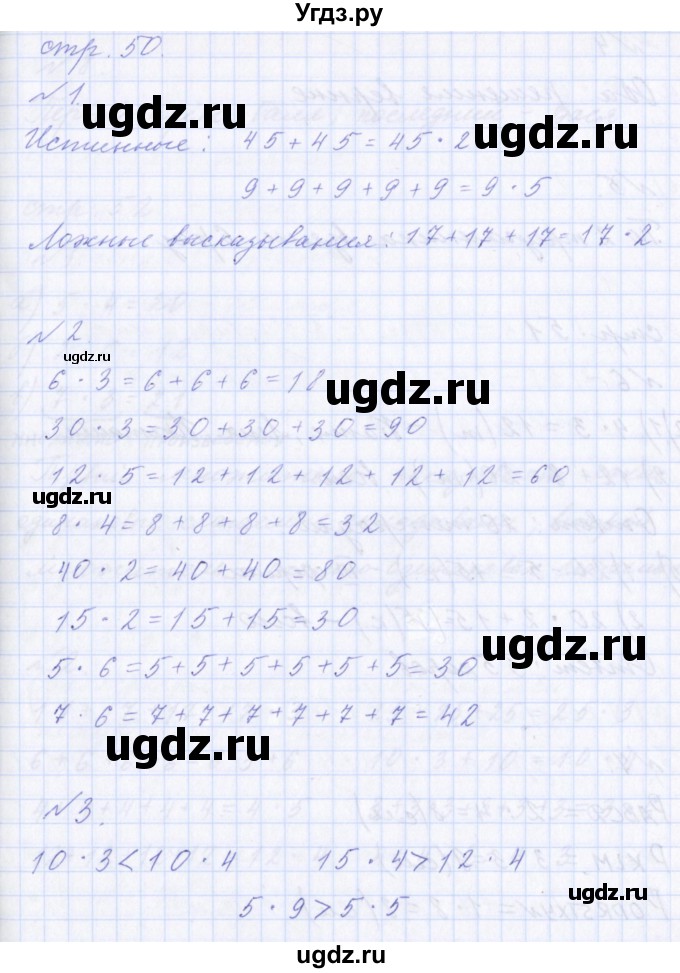 Угдз.ру
стр. 50.
№1
ugdz.ru
Истинные: 45+45=45·2
ugdz.ru
9+9+9+9+9=9·5
Ложные высказывания: 17+17+17=17·2
№2
ugdz.ru
6·3=6+6+6=18
ugdz.ru
30·3=30+30+30=90
12·5=12+12+12+12+12=60
ugdz.ru
8·4=8+8+8+8=32
40·2=40+40=80
15·2=15+15=30
ugdz.ru
5·6=5+5+5+5+5+5=30
7·6=7+7+7+7+7+7=42
ugdz.ru
№3.
10·3<10·4 15·4>12·4
ugdz.ru
5·9>5·5
ugdz.ru
ugdz.ru